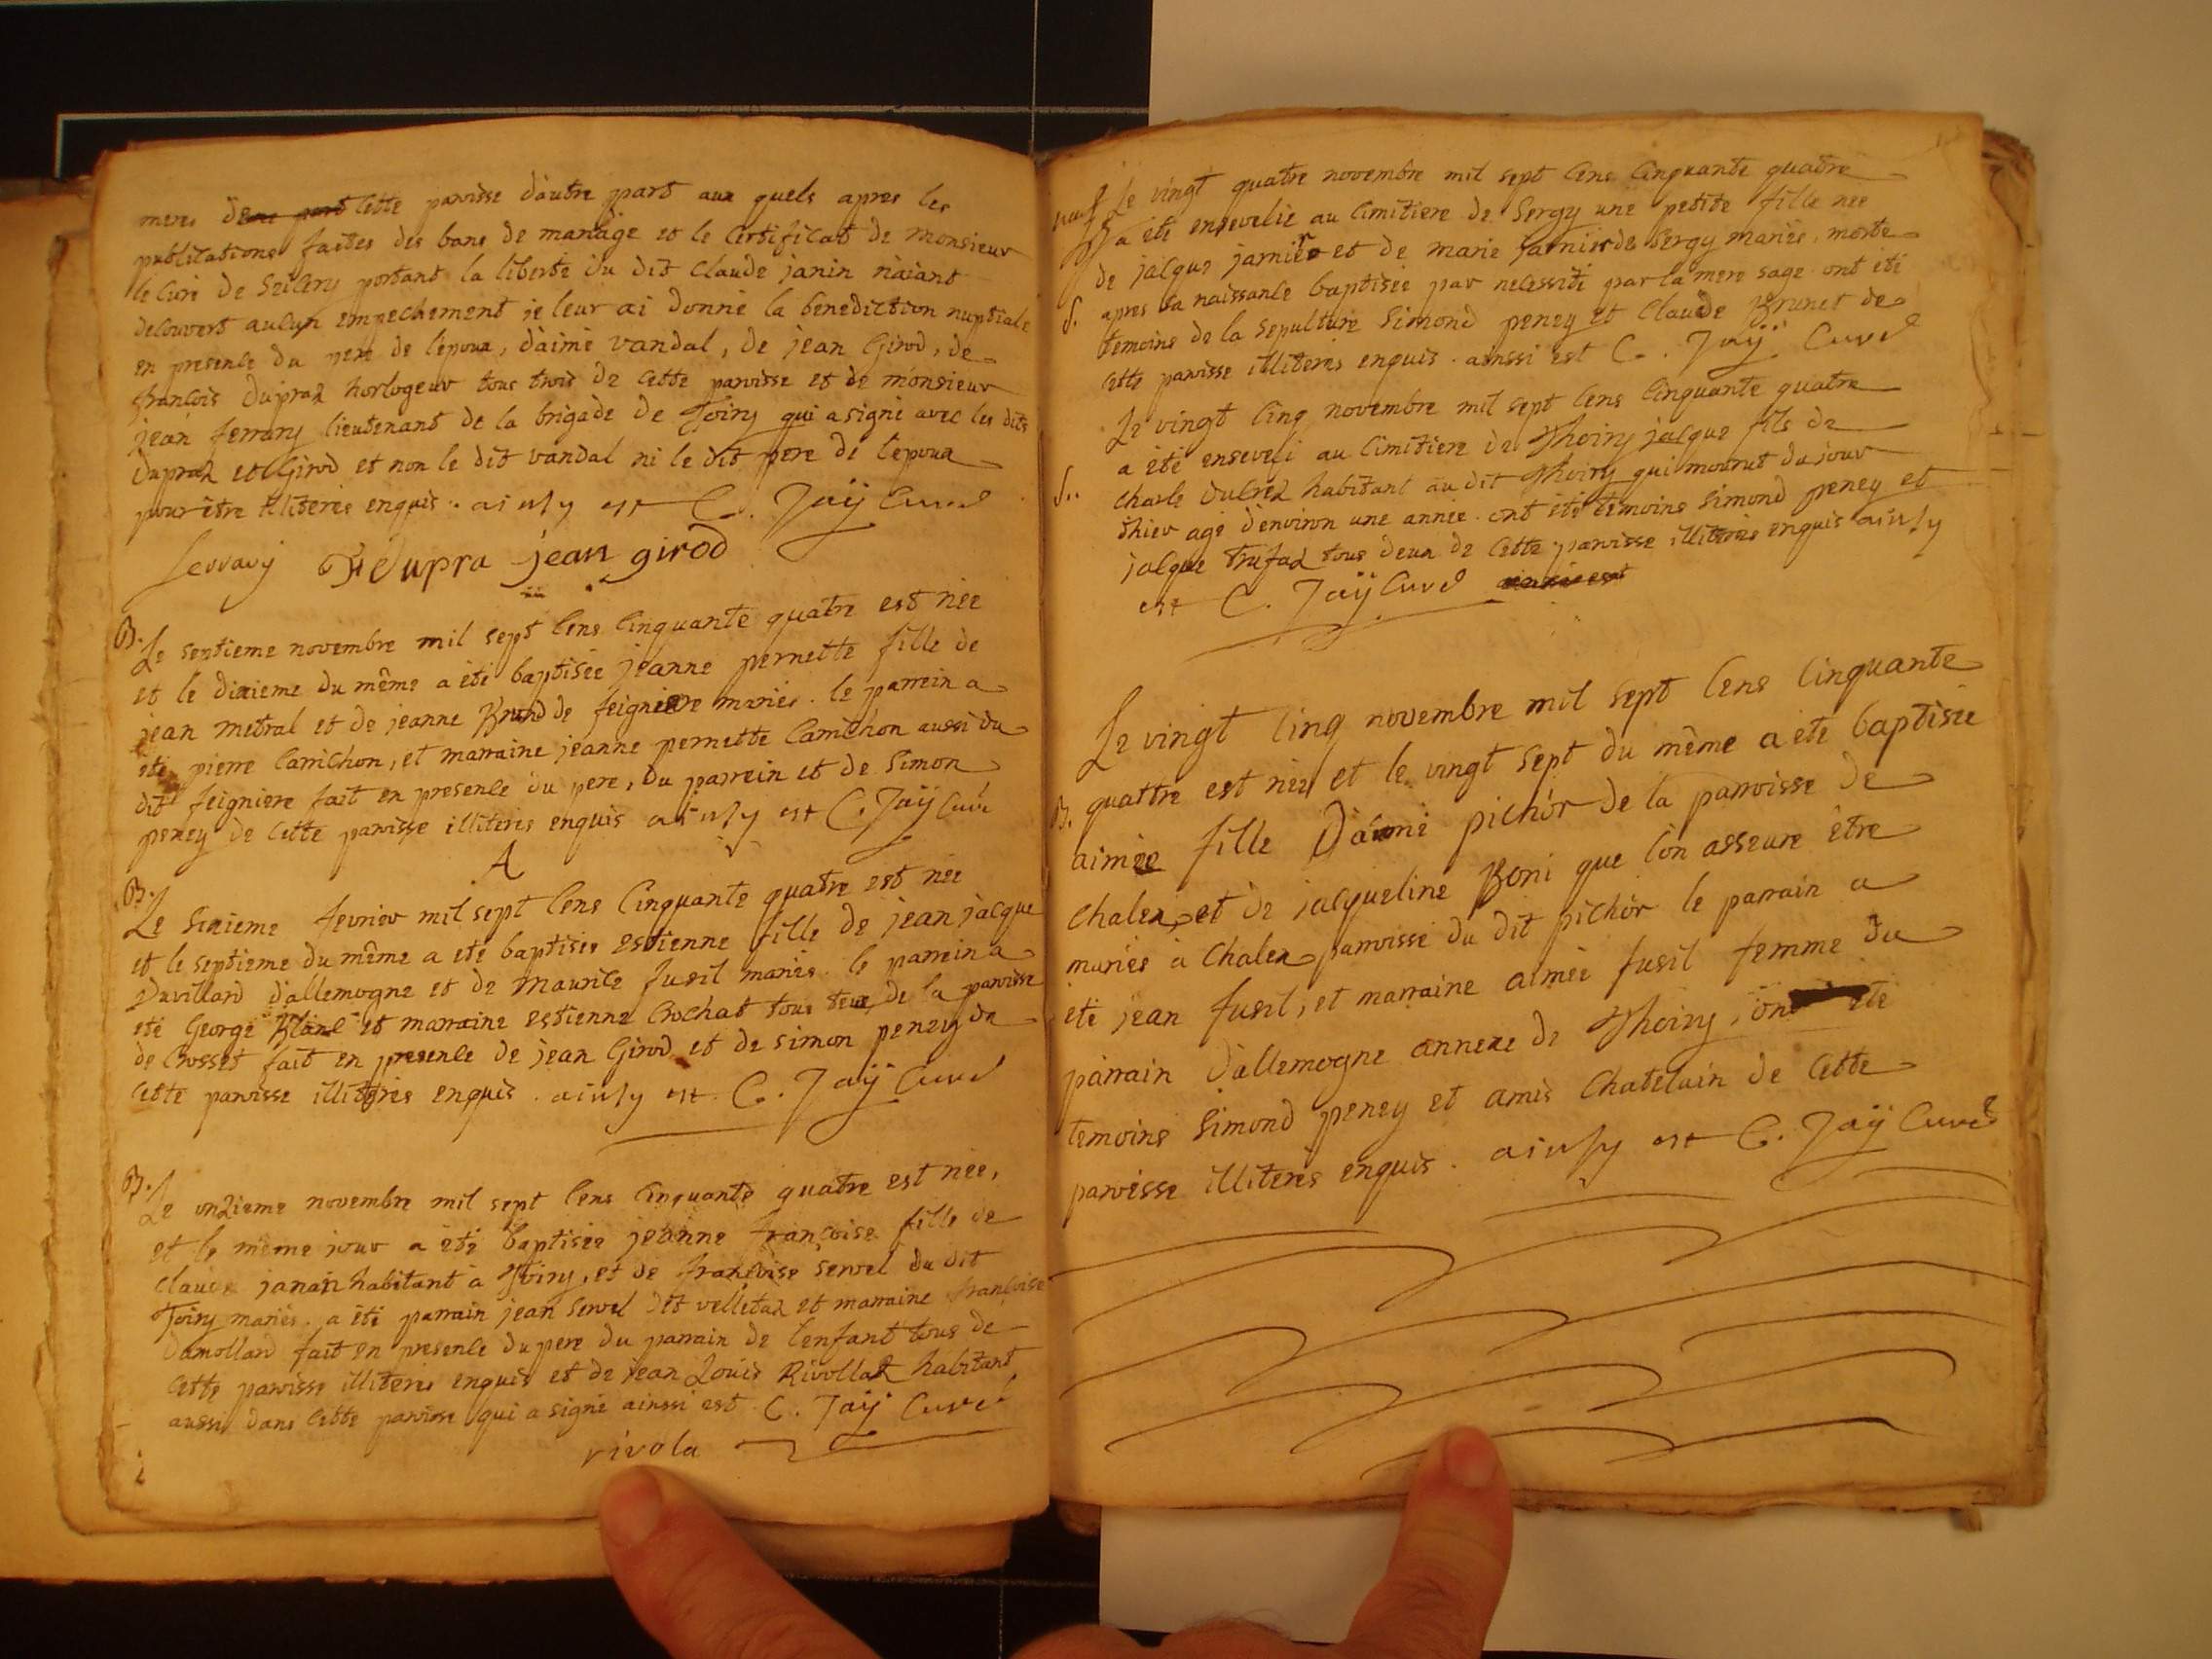 meres de cette paroisse d'autre part aux quels apres les
publications faites des bans de mariage et le certificat de monsieur
le curé de portant la liberté du dit claude janin n'aiant
decouvert aucun empechement je leur ai donné la benediction nuptiale
en presence du pere de l'epoux, d'aimé vandal, de jean Girod, de
françois Dupraz horlogeur tous trois de cette paroisse et de monsieur
jean ferrary lieutenant de la brigade de Toiry qui a signé avec les dits
dupraz et Girod et non le dit vandal ni le dit pere de l'epoux
pour être illiterés enquis. ainsy est C. Jaÿ Curé
ferrary F Dupra jean girod
B. Le septieme novembre mil sept cens cinquante quatre est née
et le dixieme du même a été baptisée jeanne pernette fille de
jean metral et de jeanne Brund de feigniere mariés. le parrein a
été pierre Carrichon, et marraine jeanne pernette Carrichon aussi du
dit feigniere fait en presence du pere, du parrein et de Simon
peney de cette paroisse illiterés enquis ainsy est C. Jaÿ Curé
A
B. Le sixieme fevrier mil sept cens cinquante quatre est née
et le septieme du même a été baptisée estienne fille de jean jacque
Duvillard d'allemogne et de maurice fusil mariés. le parrein a
été George Blanc et marraine estienne Crochat tous deux de la paroisse
de Crosset fait en presence de jean Girod et de simon peney de
cette paroisse illiterés enquis. ainsy est C. Jaÿ Curé
B. Le onzieme novembre mil sept cens cinquante quatre est née,
et le même jour a été baptisée jeanne françoise fille de
claude janin habitant à Thoiry, et de françoise servel du dit
Toiry mariés. a été parrain jean servel dit velletaz et marraine françoise
Damollard fait en presence du pere du parrain de l'enfant tous de
cette paroisse illiterés enquis et de jean Louis Rivollaz habitant
aussi dans cette paroisse qui a signé ainssi est C. Jaÿ Curé
rivola
Le vingt quatre novembre mil sept cens cinquante quatre
a été ensevelie au cimitiere de Sergy une petite fille née
de jacque jarnier et de marie jarnier de Sergy mariés, morte
S. apres sa naissance baptisée par necessité par la mere sage ont été
temoins de la sepulture Simond peney et Claude Brunet de
cette paroisse illiterés enquis. ainssi est C. Jaÿ Curé
Le vingt cinq novembre mil sept cens cinquante quatre
a été enseveli au cimitiere de Thoiry jacque fils de
S.. charle Ducrez habitant au dit Thoiry qui mourut du jour
d'hier agé d'environ une année. ont été temoins simond peney et
jacque Trufaz tous deux de cette paroisse illiterés enquis ainsy
est C. Jaÿ Curé
Le vingt cinq novembre mil sept cens cinquante
B. quattre est née et le vingt sept du même a été baptisée
aimée fille D'aimé pichór de la parroisse de
Chalex, et de jacqueline Boni que l'on asseure être
mariés à Chalex parroisse du dit pichór le parrain a
été jean fusil, et marraine aimée fusil femme du
parrain d'allemogne annexe de Thoiry, ont été
temoins Simond peney et amis Chatelain de cette
paroisse illiterés enquis. ainsy est C. Jaÿ Curé